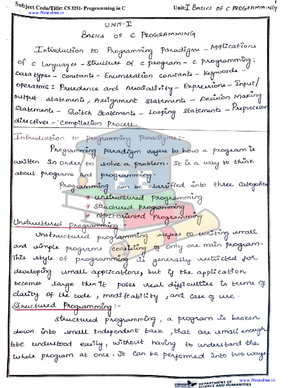 www.Notesfree.in
www.Notesfree.in
Subject Code/Title: CS 3251- Programming in C
Unit: I BASICS OF C PROGRAMMING
UNIT-I
BASICS OF C PROGRAMMING
Introduction to Programming Paradigms - Applications
of C Language - Structure of C program - C programming:
Data types - Constants - Enumeration Constants - Keywords -
operators: Precedence and Associativity - Expressions - Input/
output statements, Assignment statements - Decision Making
Statements - Switch Statements - Looping Statements - Preprocessor
directives - Compilation Process.
Introduction to programming Paradigms:-
Programming Paradigm refers to how a program is
written in order to solve a problem. It is a way to think
about programs and programming.
Programming can be classified into three categories
* unstructured programming
* structured programming
* object oriented programming
Unstructured Programming:-
Unstructured programming refers to writing small
and simple programs consisting of only one main program.
This style of programming is generally restricted for
developing small applications, but if the application
becomes large then it poses real difficulties in terms of
clarity of the code, modifiability, and ease of use.
Structured Programming:-
Structured programming, a program is broken
down into small independent tasks, that are small enough
be understood easily, without having to understand the
whole program at once. It can be performed into two ways
DEPARTMENT OF
SCIENCE AND HUMANITIES